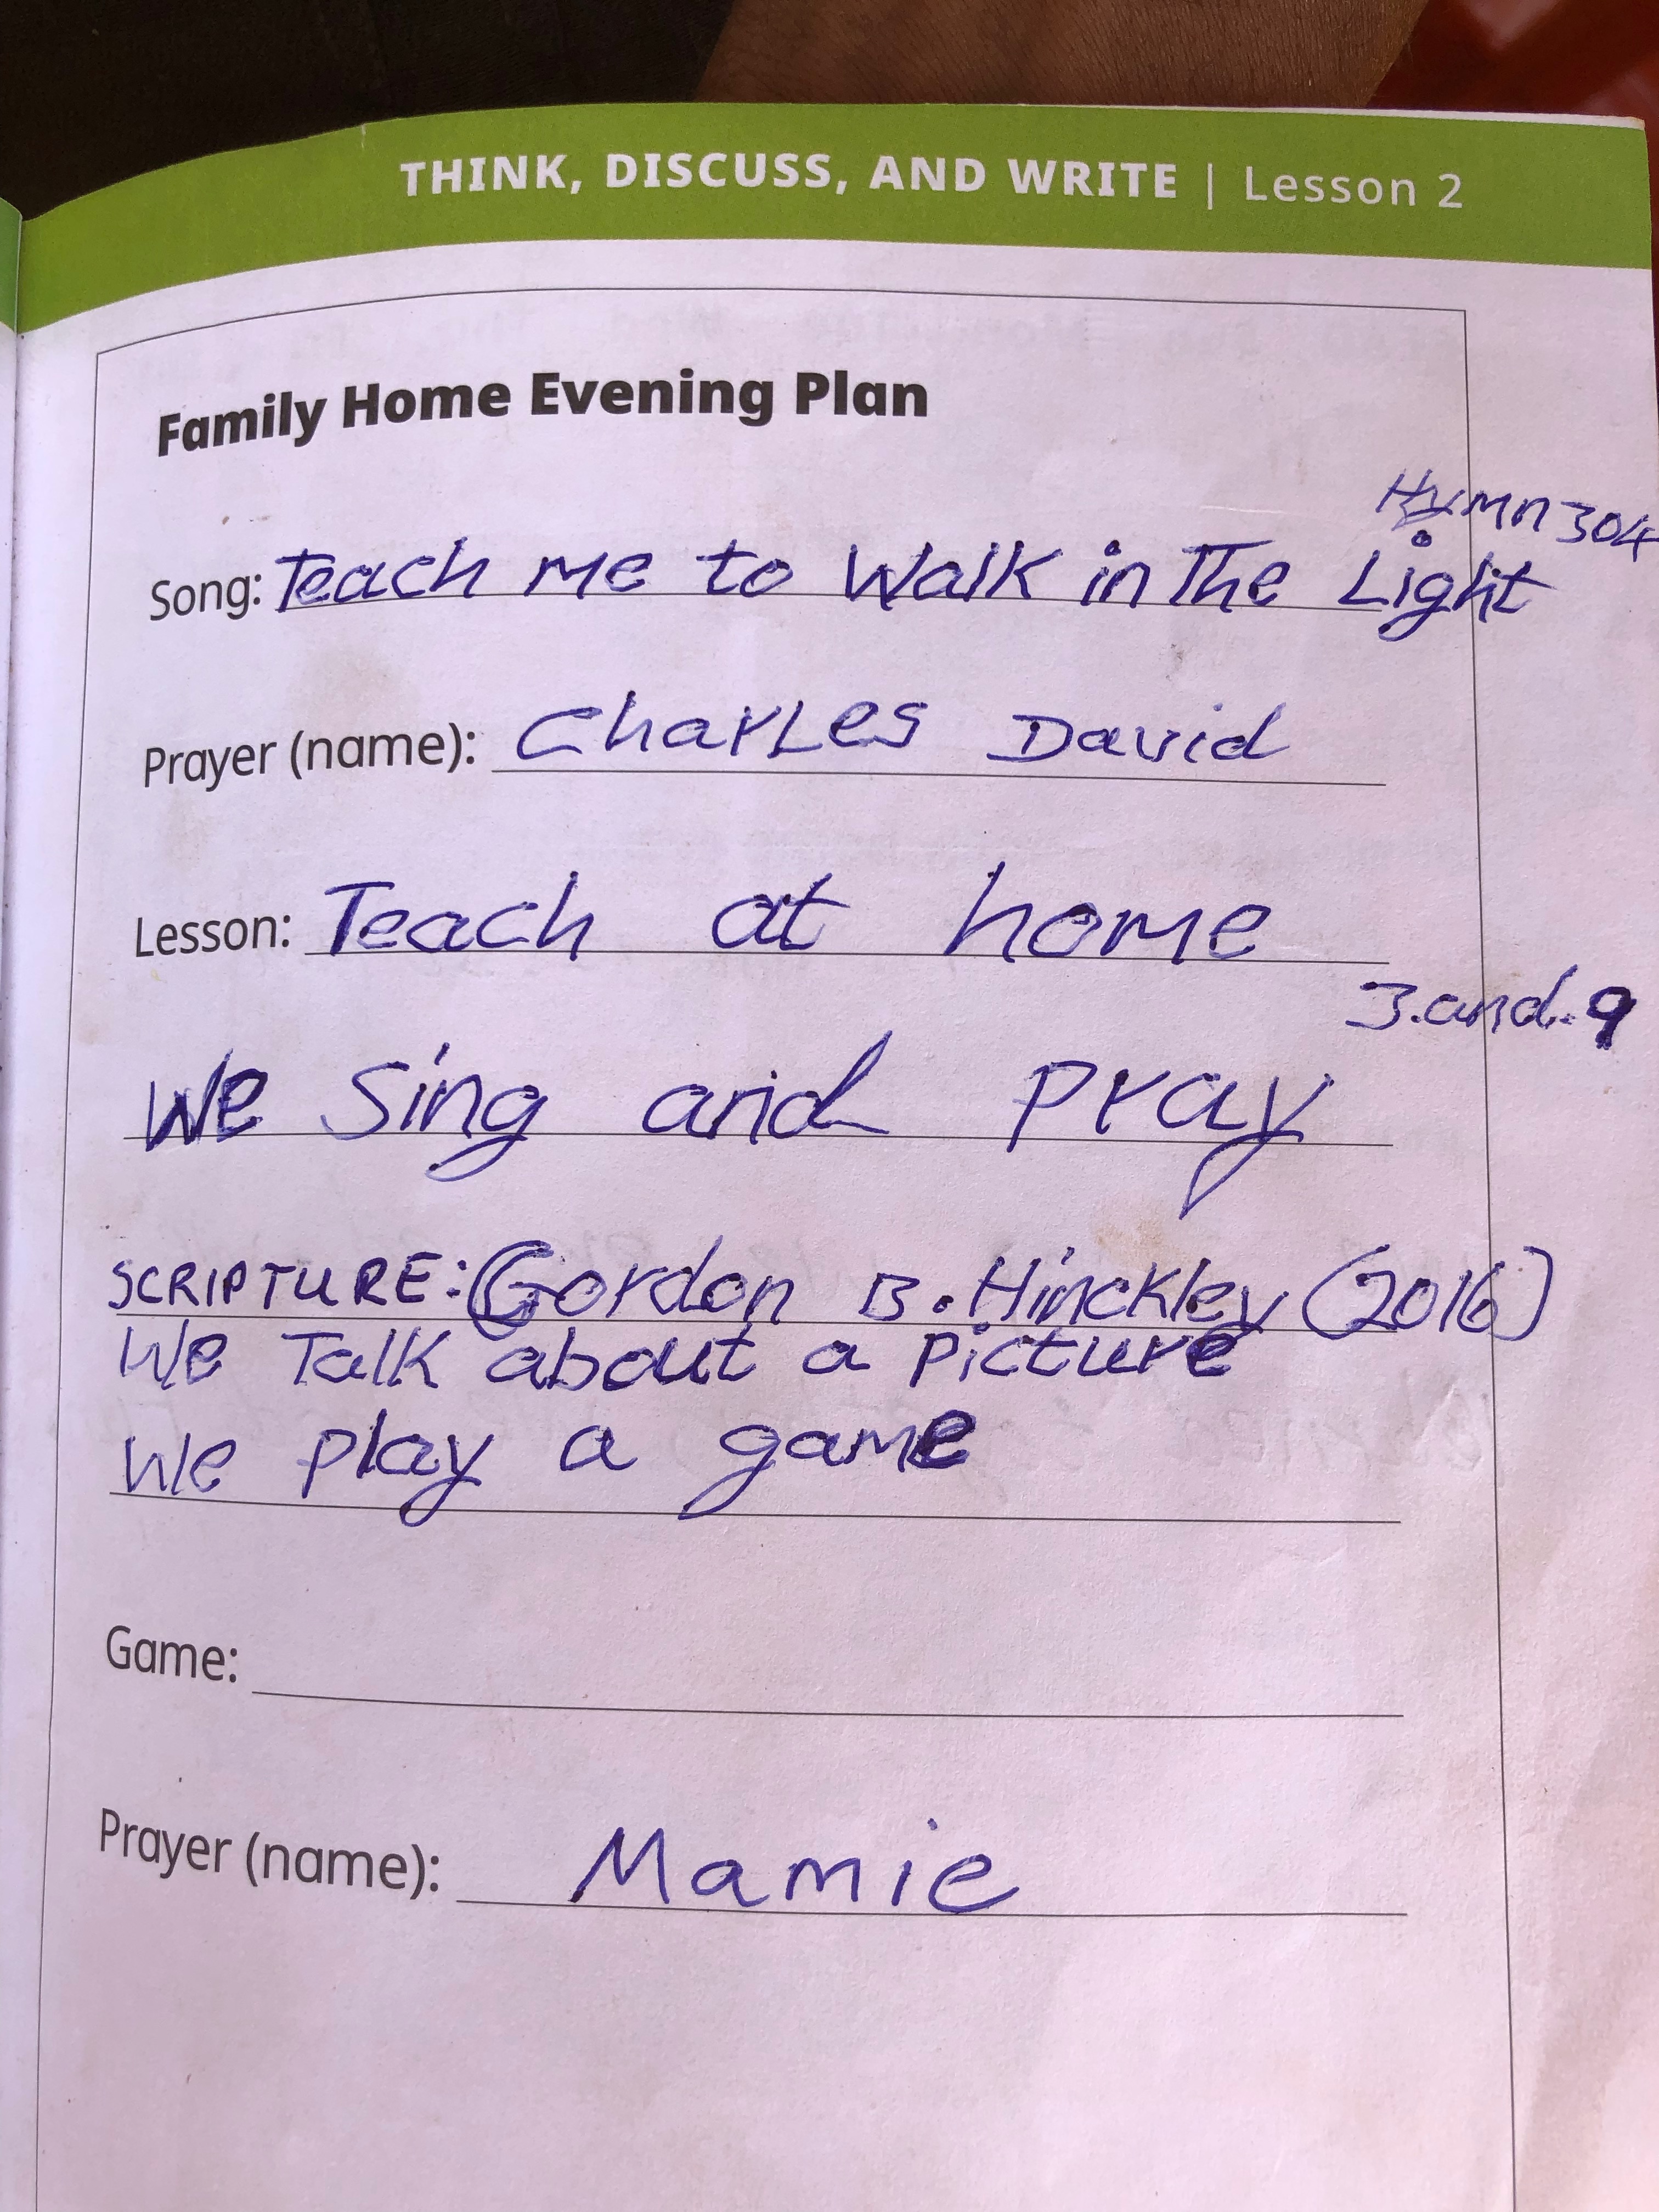 THINK, DISCUSS, AND WRITE | Lesson 2
Family Home Evening Plan
Hymn 304
Song: Teach me to Walk in The Light
Prayer (name): Charles David
Lesson: Teach at home
3.and.9
We Sing and pray
SCRIPTURE: Gordon B. Hinckley (2016)
We Talk about a picture
We play a game
Game:
Prayer (name): Mamie